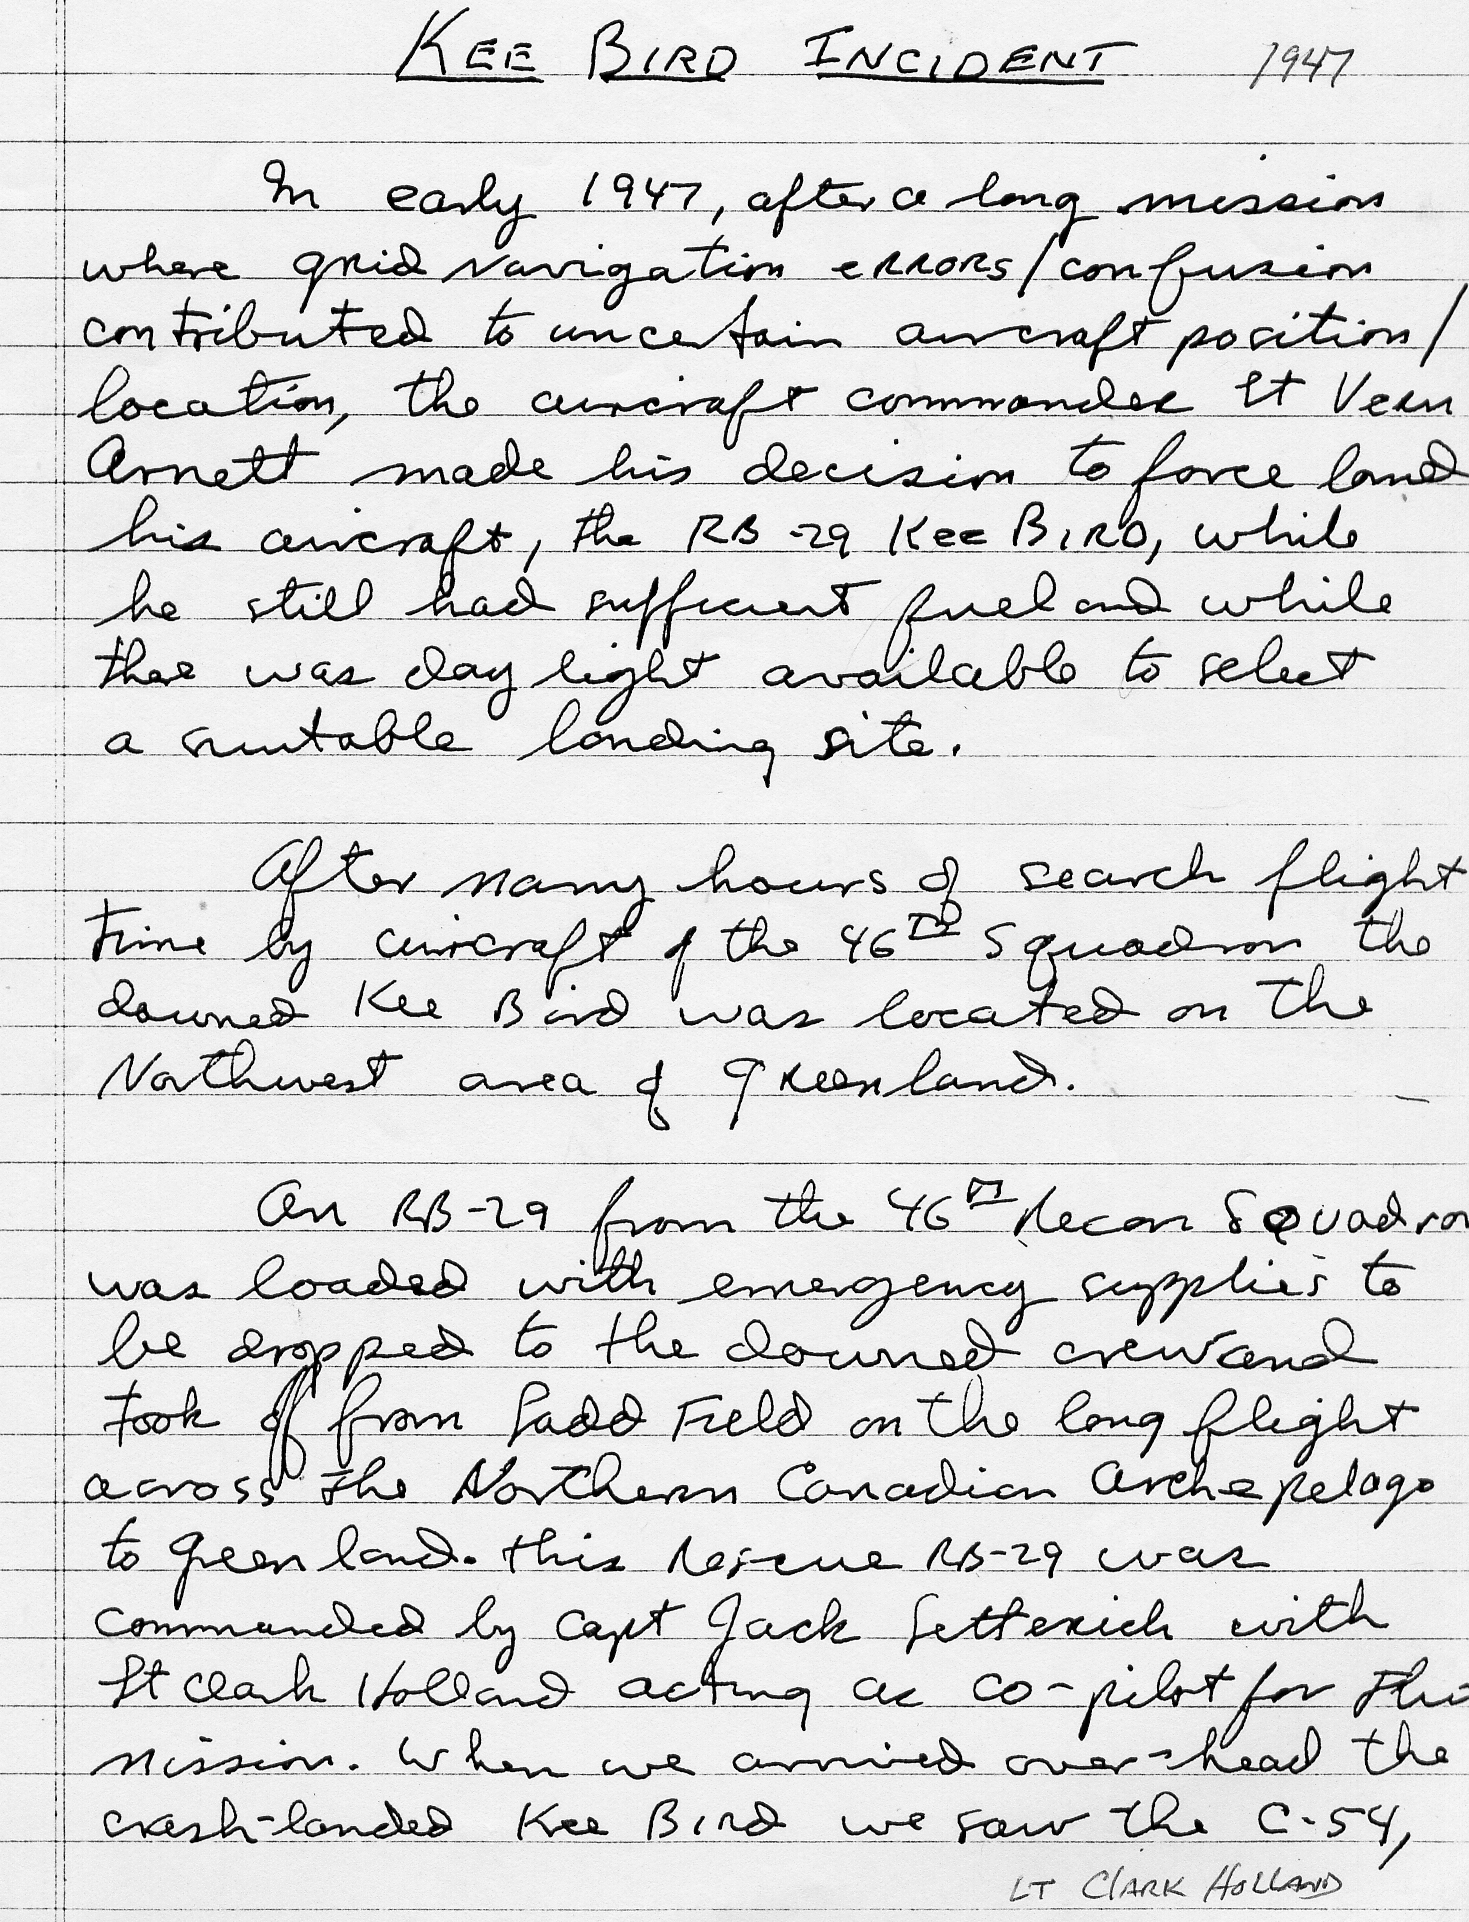 KEE BIRD INCIDENT 1947
In early 1947, after a long mission
where grid navigation errors/confusion
contributed to uncertain aircraft position/
location, the aircraft commander Lt Vern
Arnett made his decision to force land
his aircraft, the RB-29 Kee BIRD, while
he still had sufficient fuel and while
there was day light available to select
a suitable landing site.
After many hours of search flight
time by aircraft of the 46TH Squadron the
downed Kee Bird was located on the
Northwest area of Greenland.
An RB-29 from the 46TH Recon Squadron
was loaded with emergency supplies to
be dropped to the downed crew and
took off from Ladd Field on the long flight
across the Northern Canadian Archepelago
to Greenland. This Rescue RB-29 was
commanded by Capt Jack Setterich with
Lt Clark Holland acting as co-pilot for this
mission. When we arrived over-head the
crash-landed Kee Bird we saw the C-54,
LT CLARK HOLLAND